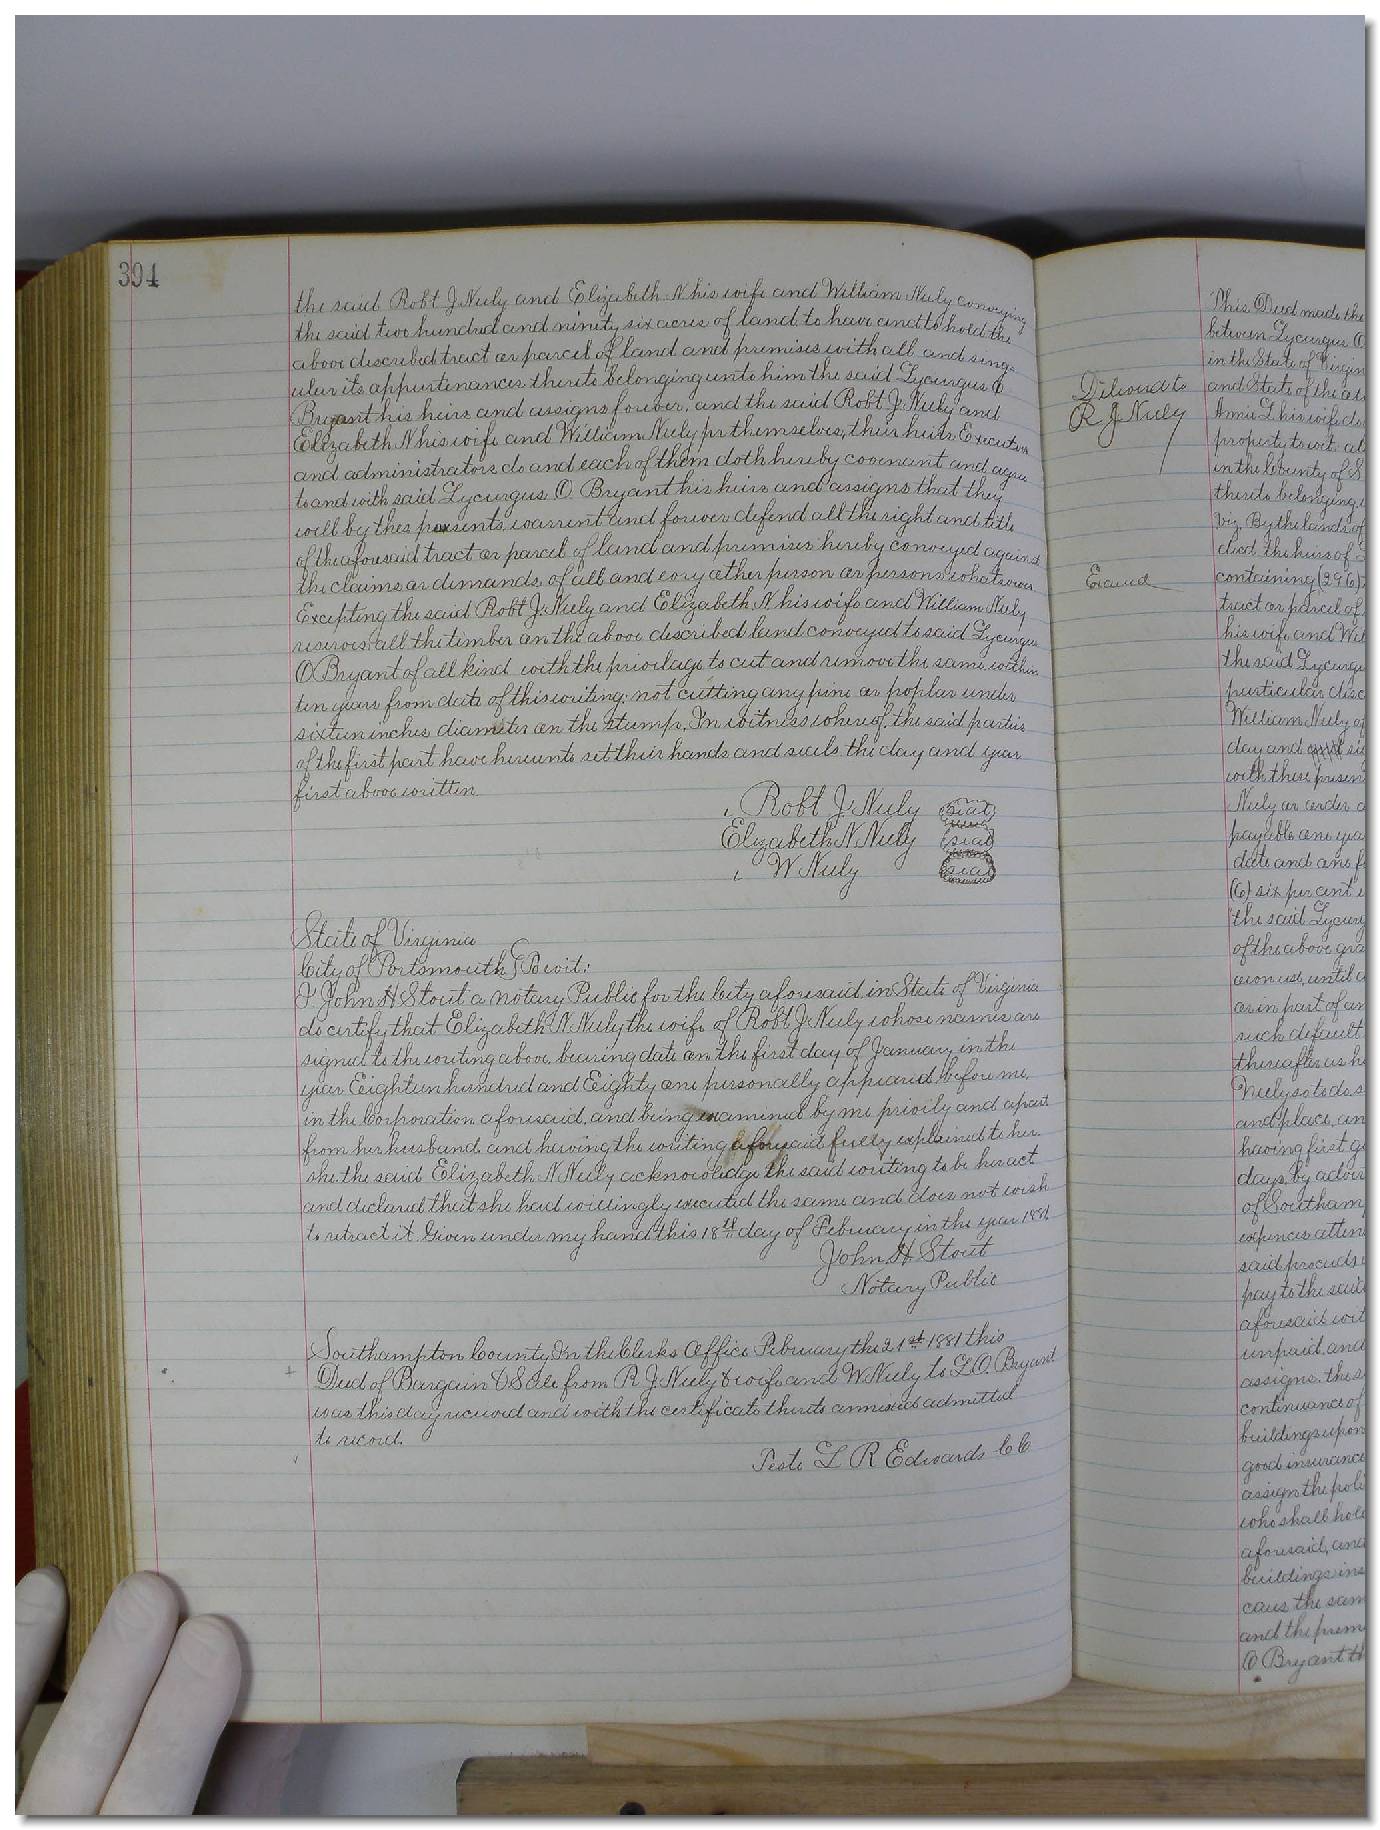 394
the said Robt J. Neely and Elizabeth N his wife and William Neely conveying
the said two hundred and ninety six acres of land to have and to hold the
above described tract or parcel of land and premises with all and sing-
ular its appurtenances thereto belonging unto him the said Lycurgus O
Bryant his heirs and assigns forever, and the said Robt J. Neely and
Elizabeth N his wife and William Neely for themselves, their heirs Executors
and administrators do and each of them doth hereby covenant and agree
to and with said Lycurgus O. Bryant his heirs and assigns that they
will by thes presents warrent and forever defend all the right and title
of the aforesaid tract or parcel of land and premises hereby conveyed against
the claims or demands of all and evry other person or persons whatsoever
Excepting the said Robt J. Neely and Elizabeth N his wife and William Neely
reserves all the timber on the above described land conveyed to said Lycurgus
O Bryant of all kind with the privilage to cut and remove the same within
ten years from date of this writing; not cutting any pine or poplar under
sixteen inches diameter on the stump. In witness whereof, the said parties
of the first part have hereunto set their hands and seals the day and year
first above written
Robt J. Neely seal
Elizabeth N Neely seal
W Neely seal
State of Virginia
City of Portsmouth
I John H Stout a notary Public for the City aforesaid in State of Virginia
do certify that Elizabeth N. Neely the wife of Robt J. Neely whose names are
signed to the writing above, bearing date on the first day of January in the
year Eighteen hundred and Eighty one personally appeared before me,
in the Corporation aforesaid, and being examined by me privily and apart
from her husband and having the writing aforesaid fully explained to her
she the said Elizabeth N. Neely acknowledge the said writing to be her act
and declared that she had willingly executed the same and does not wish
to retract it Given under my hand this 18th day of February in the year 1881
John H Stout
Notary Public
Southampton County In the Clerks Office February the 21st 1881 this
Deed of Bargain & Sale from R J. Neely & wife and W Neely to L. O. Bryant
was this day received and with the certificate thereto annexed admitted
to record.
Teste L R Edwards CC
Delivered to
R J Neely
This Deed made the
between Lycurgus O
in the State of Virgin
and State of the
Annie L his wife do
property to wit: all
in the County of S
thereto belonging,
viz By the lands of
died, the heirs of
containing (296)
tract or parcel of
his wife and Wil
the said Lycurgu
perticular disc
William Neely of
day and
with these presen
Neely or order
payable one yea
date and one
(6) six per cent
the said Lycurg
of the above gra
until
or in part of an
such default
thereafter as he
Neely so to do s
and place, an
having first g
days, by adver
of Southam
expences atten
said proceeds
pay to the said
aforesaid wit
unpaid, and
assigns. the s
continuance of
buildings upon
good insurance
assign the poli
who shall hold
aforesaid, and
buildings ins
caus the sam
and the prem
O Bryant th